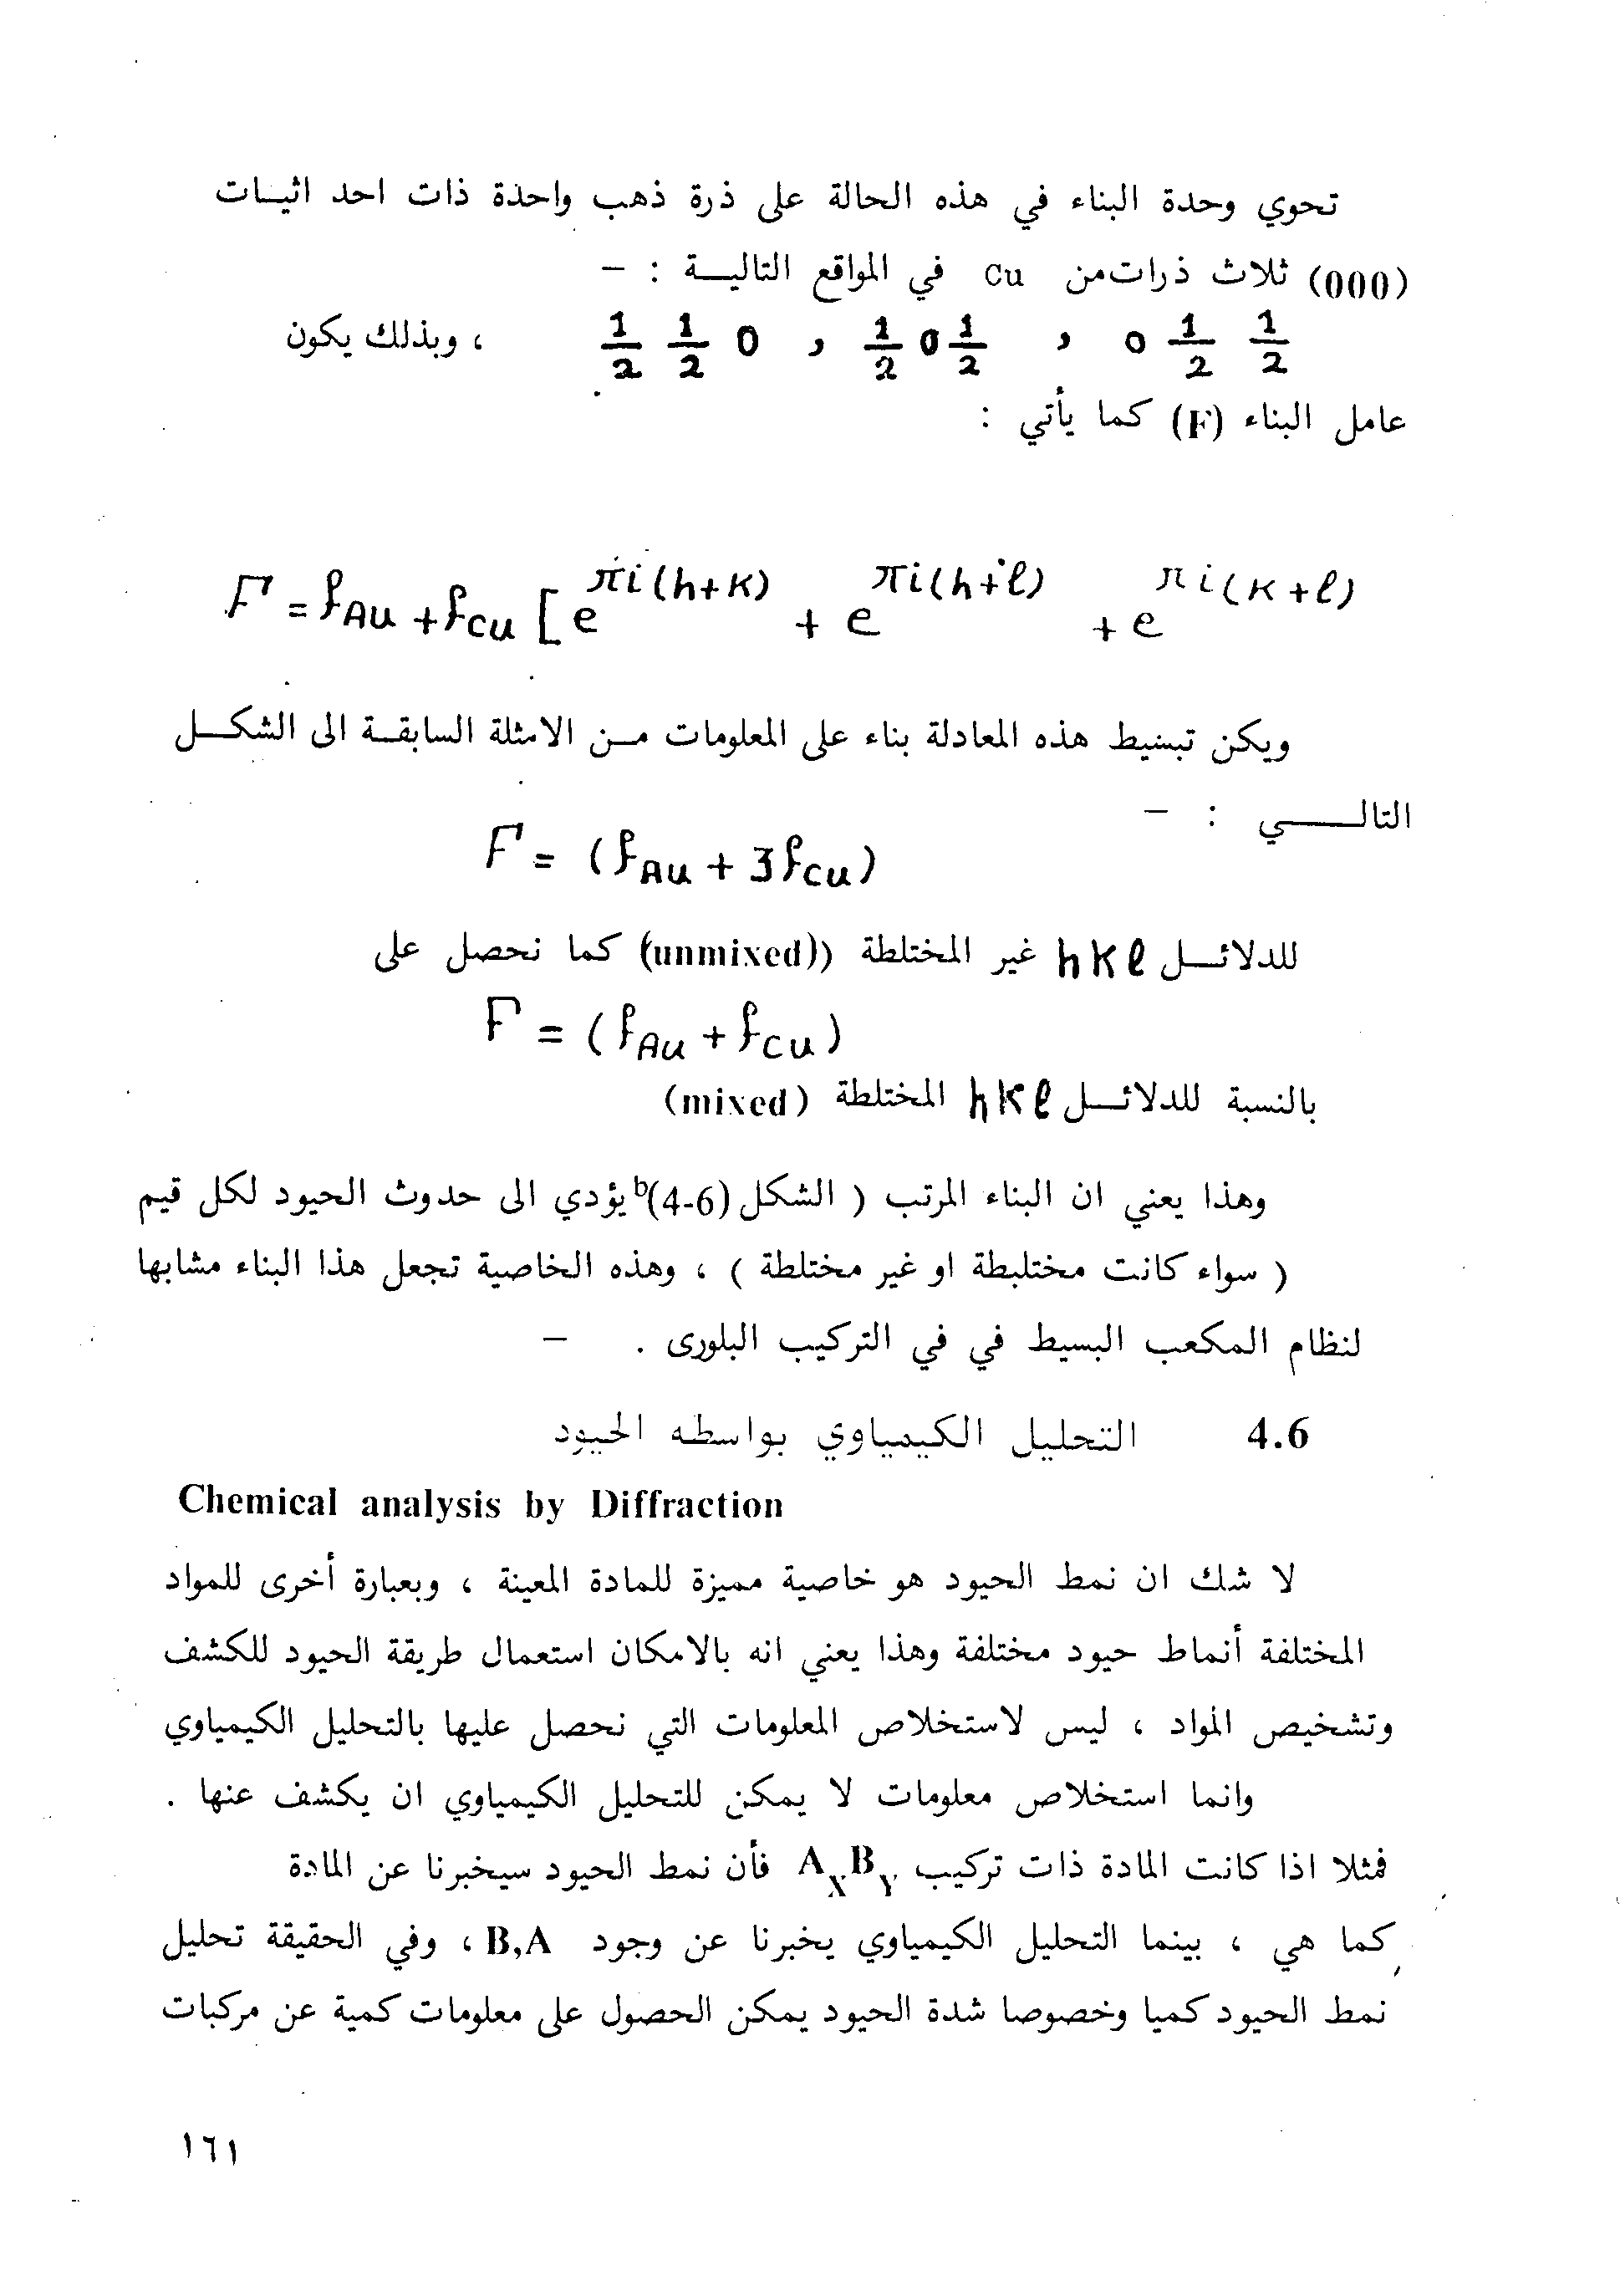 تحوي وحدة البناء في هذه الحالة على ذرة ذهب واحذة ذات احد اثيات
(000) ثلاث ذرات من Cu في المواقع التالية : –
½ ½ 0 , ½ 0 ½ , 0 ½ ½ ، وبذلك يكون
عامل البناء (F) كما يأتي :
F = fAu + fCu [ e^πi(h+K) + e^πi(h+ℓ) + e^πi(K+ℓ)
ويكن تبسيط هذه المعادلة بناء على المعلومات من الامثلة السابقة الى الشكل
التالي : –
F = (fAu + 3fCu)
للدلائل hKℓ غير المختلطة ((unmixed) كما نحصل على
F = (fAu + fCu)
بالنسبة للدلائل hKℓ المختلطة (mixed)
وهذا يعني ان البناء المرتب ( الشكل (4-6)b يؤدي الى حدوث الحيود لكل قيم
( سواء كانت مختلبطة او غير مختلطة ) ، وهذه الخاصية تجعل هذا البناء مشابها
لنظام المكعب البسيط في في التركيب البلورى . –
4.6 التحليل الكيمياوي بواسطه الحيود
Chemical analysis by Diffraction
لا شك ان نمط الحيود هو خاصية مميزة للمادة المعينة ، وبعبارة أخرى للمواد
المختلفة أنماط حيود مختلفة وهذا يعني انه بالامكان استعمال طريقة الحيود للكشف
وتشخيص المواد ، ليس لاستخلاص المعلومات التي نحصل عليها بالتحليل الكيمياوي
وانما استخلاص معلومات لا يمكن للتحليل الكيمياوي ان يكشف عنها .
فمثلا اذا كانت المادة ذات تركيب AXBY فأن نمط الحيود سيخبرنا عن المادة
كما هي ، بينما التحليل الكيمياوي يخبرنا عن وجود B,A ، وفي الحقيقة تحليل
نمط الحيود كميا وخصوصا شدة الحيود يمكن الحصول على معلومات كمية عن مركبات
١٦١